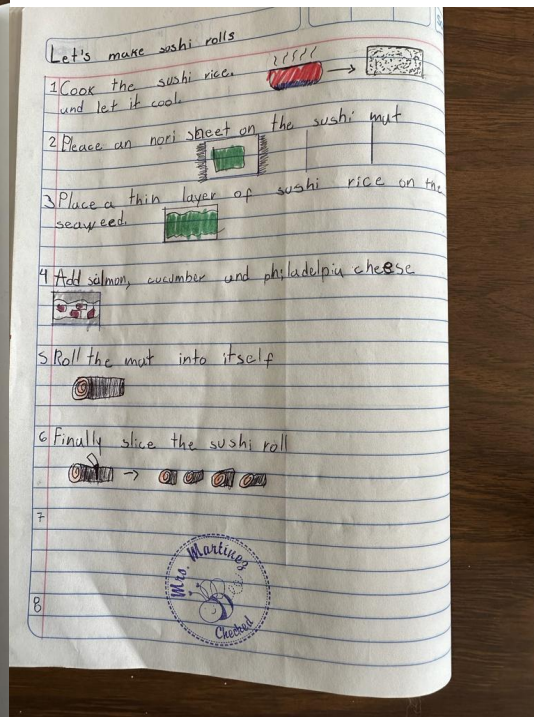 Let's make sushi rolls
1 Cook the sushi rice.
and let it cool.
2 Pleace an nori sheet on the sushi mat
3 Place a thin layer of sushi rice on the
seaweed.
4 Add salmon, cucumber and philadelpia cheese
5 Roll the mat into itself
6 Finally slice the sushi roll
7
Mrs. Martinez
Checked
8